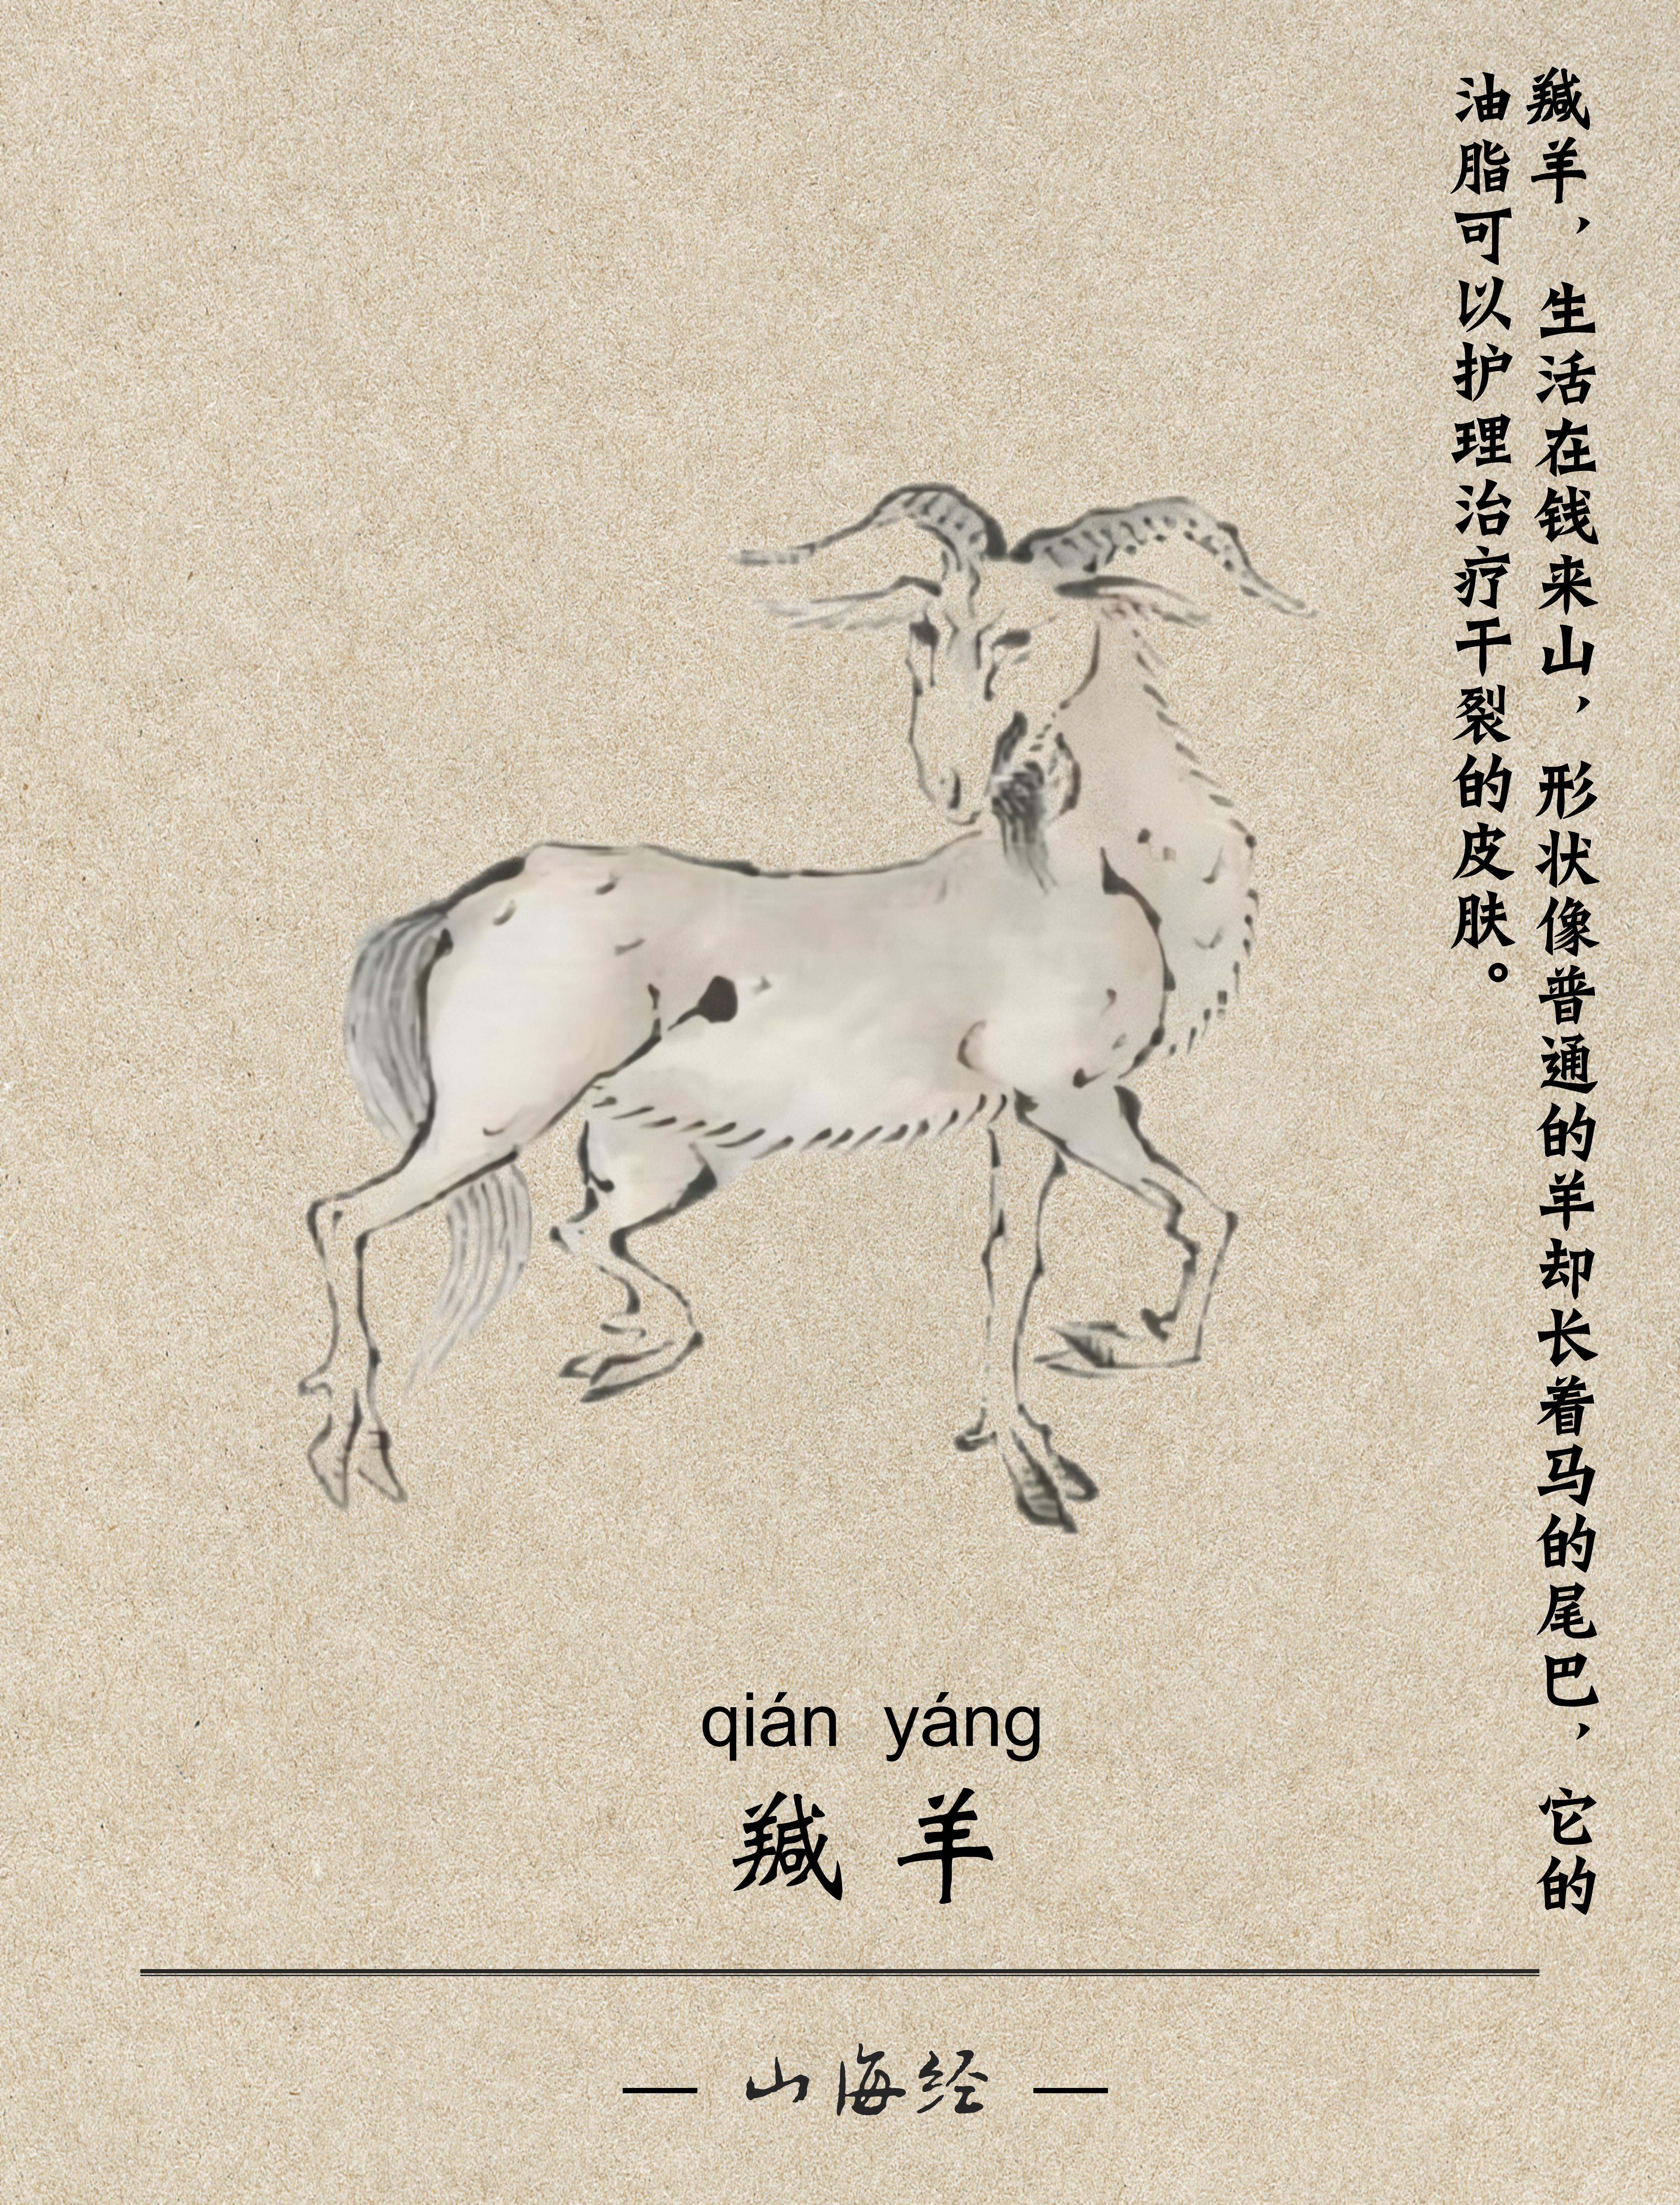 羬羊，生活在钱来山，形状像普通的羊却长着马的尾巴，它的
油脂可以护理治疗干裂的皮肤。
qián yáng
羬羊
— 山海经 —